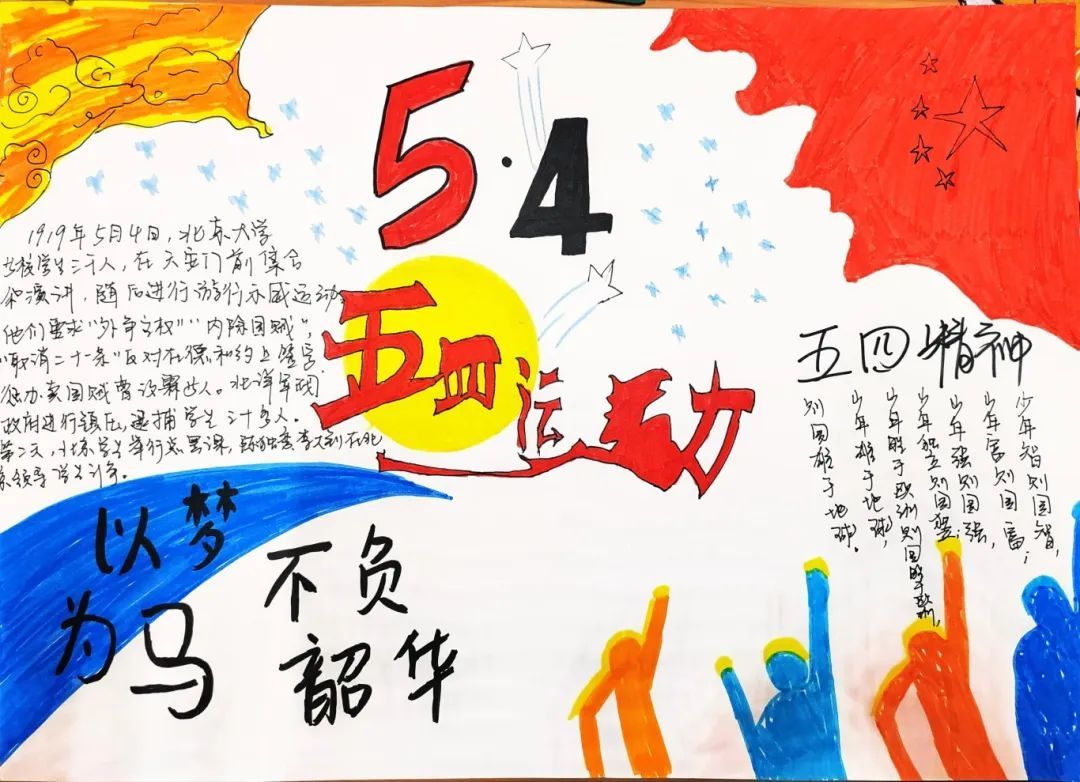 5.4
五四运动
1919年5月4日，北京大学
校学生三千人，在天安门前集合
和演讲，随后进行游行示威运动
他们要求“外争主权”“内除国贼”，
“取消二十条”反对和约上签字
惩办卖国贼曹人。北洋军阀
政府进行镇压，逮捕学生三十多人。
第二天，北京学生举行总罢课，
领导学生
以梦
为马
不负
韶华
五四精神
少年智则国智，
少年富则国富；
少年强则国强，
少年独立则国
少年胜于欧洲则国胜欧洲，
少年雄于地球，
则国雄于地球。